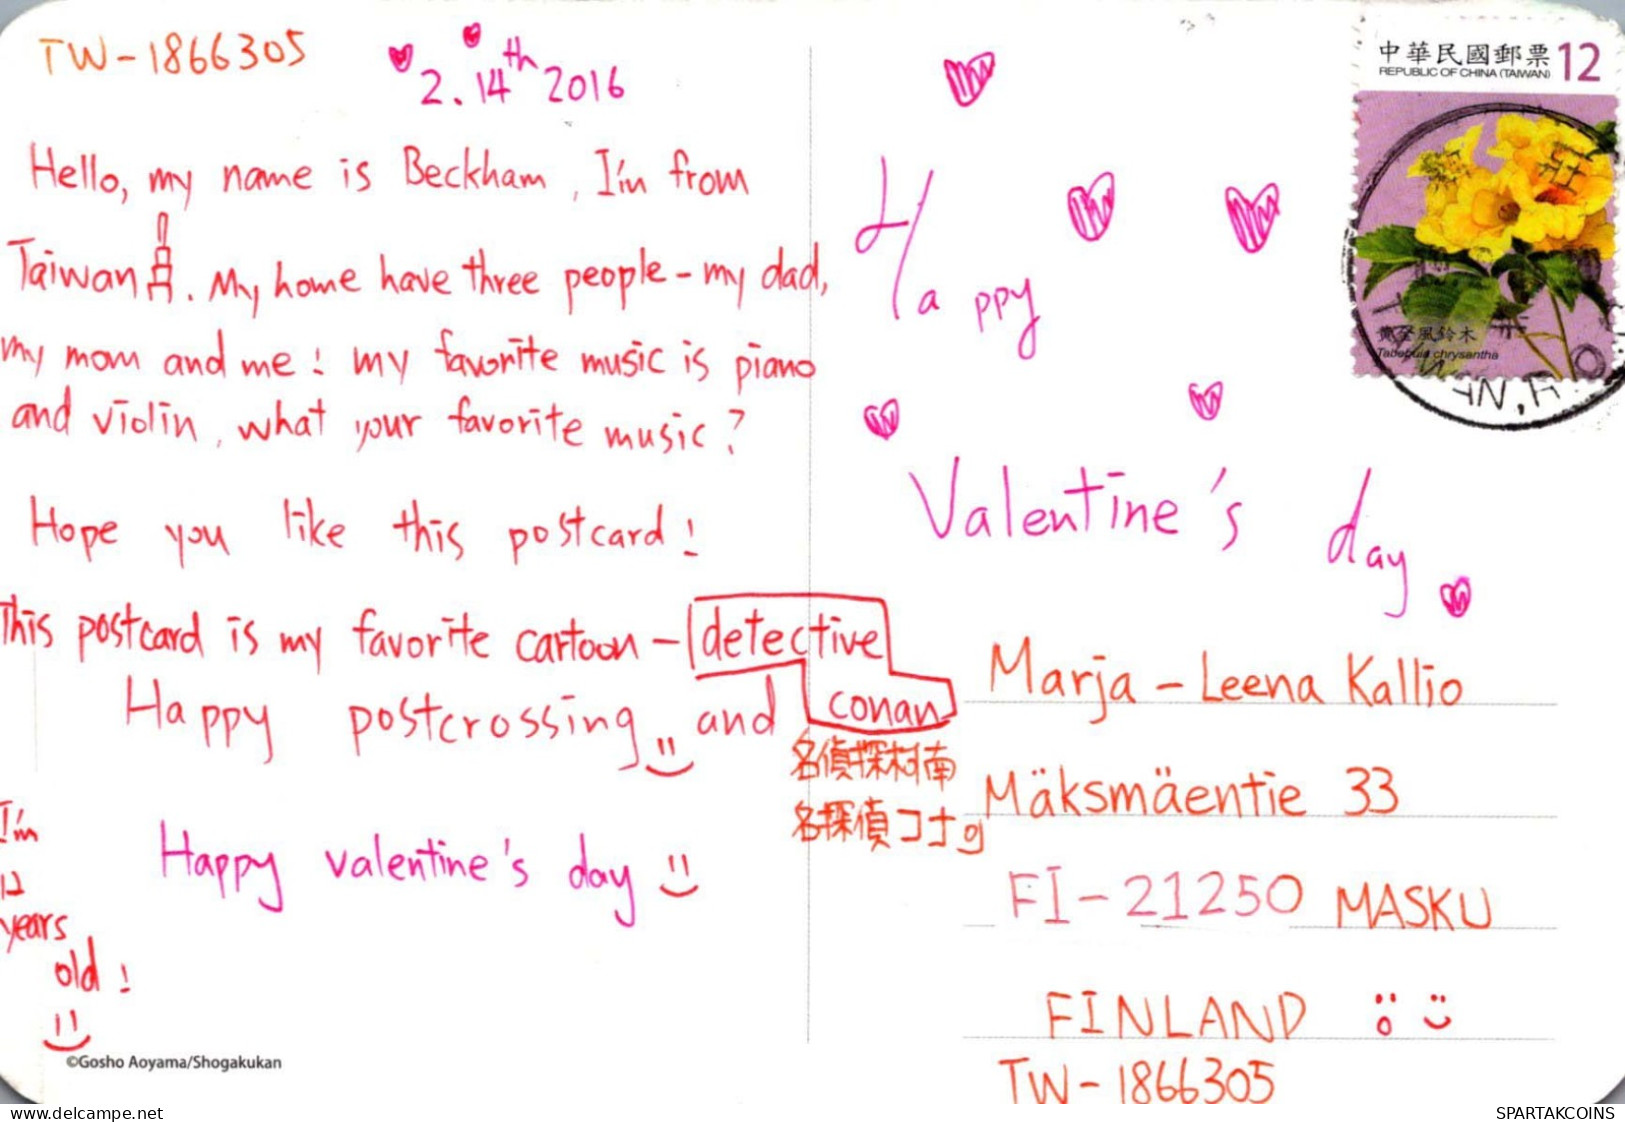 TW-1866305
2.14th 2016
Hello, my name is Beckham, I'm from
Taiwan. My home have three people - my dad,
my mom and me! my favorite music is piano
and violin, what your favorite music?
Hope you like this postcard!
This postcard is my favorite cartoon - detective
conan
名偵探柯南
名探偵コナン
Happy postcrossing and
Happy valentine's day
I'm
12
years
old!
©Gosho Aoyama/Shogakukan
中華民國郵票 12
REPUBLIC OF CHINA (TAIWAN)
黃金風鈴木
Tabebuia chrysantha
Happy
Valentine's day
Marja-Leena Kallio
Mäksmäentie 33
FI-21250 MASKU
FINLAND
TW-1866305
www.delcampe.net
SPARTAKCOINS